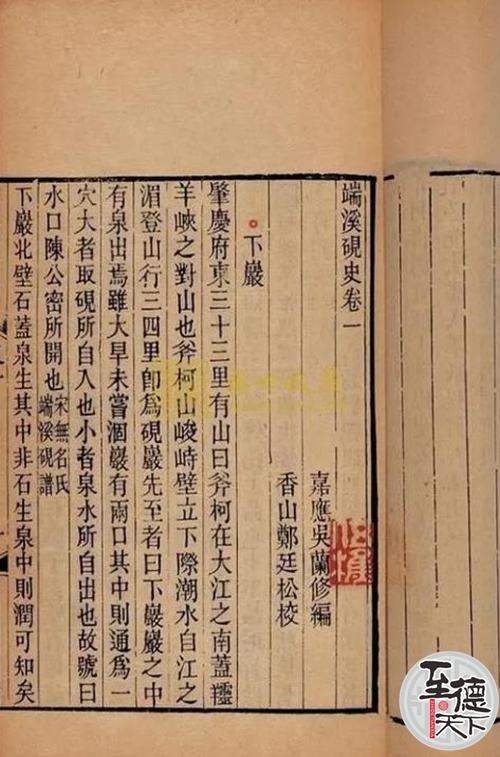 端溪硯史卷一
嘉應吳蘭修編
香山鄭廷松校
下巖
肇慶府東三十三里有山曰斧柯在大江之南蓋靈
羊峽之對山也斧柯山峻峙壁立下際潮水自江之
湄登山行三四里卽爲硯巖先至者曰下巖巖之中
有泉出焉雖大旱未嘗涸巖有兩口其中則通爲一
穴大者取硯所自入也小者泉水所自出也故號曰
水口陳公密所開也宋無名氏端溪硯譜
下巖北壁石蓋泉生其中非石生泉中則潤可知矣
至德天下